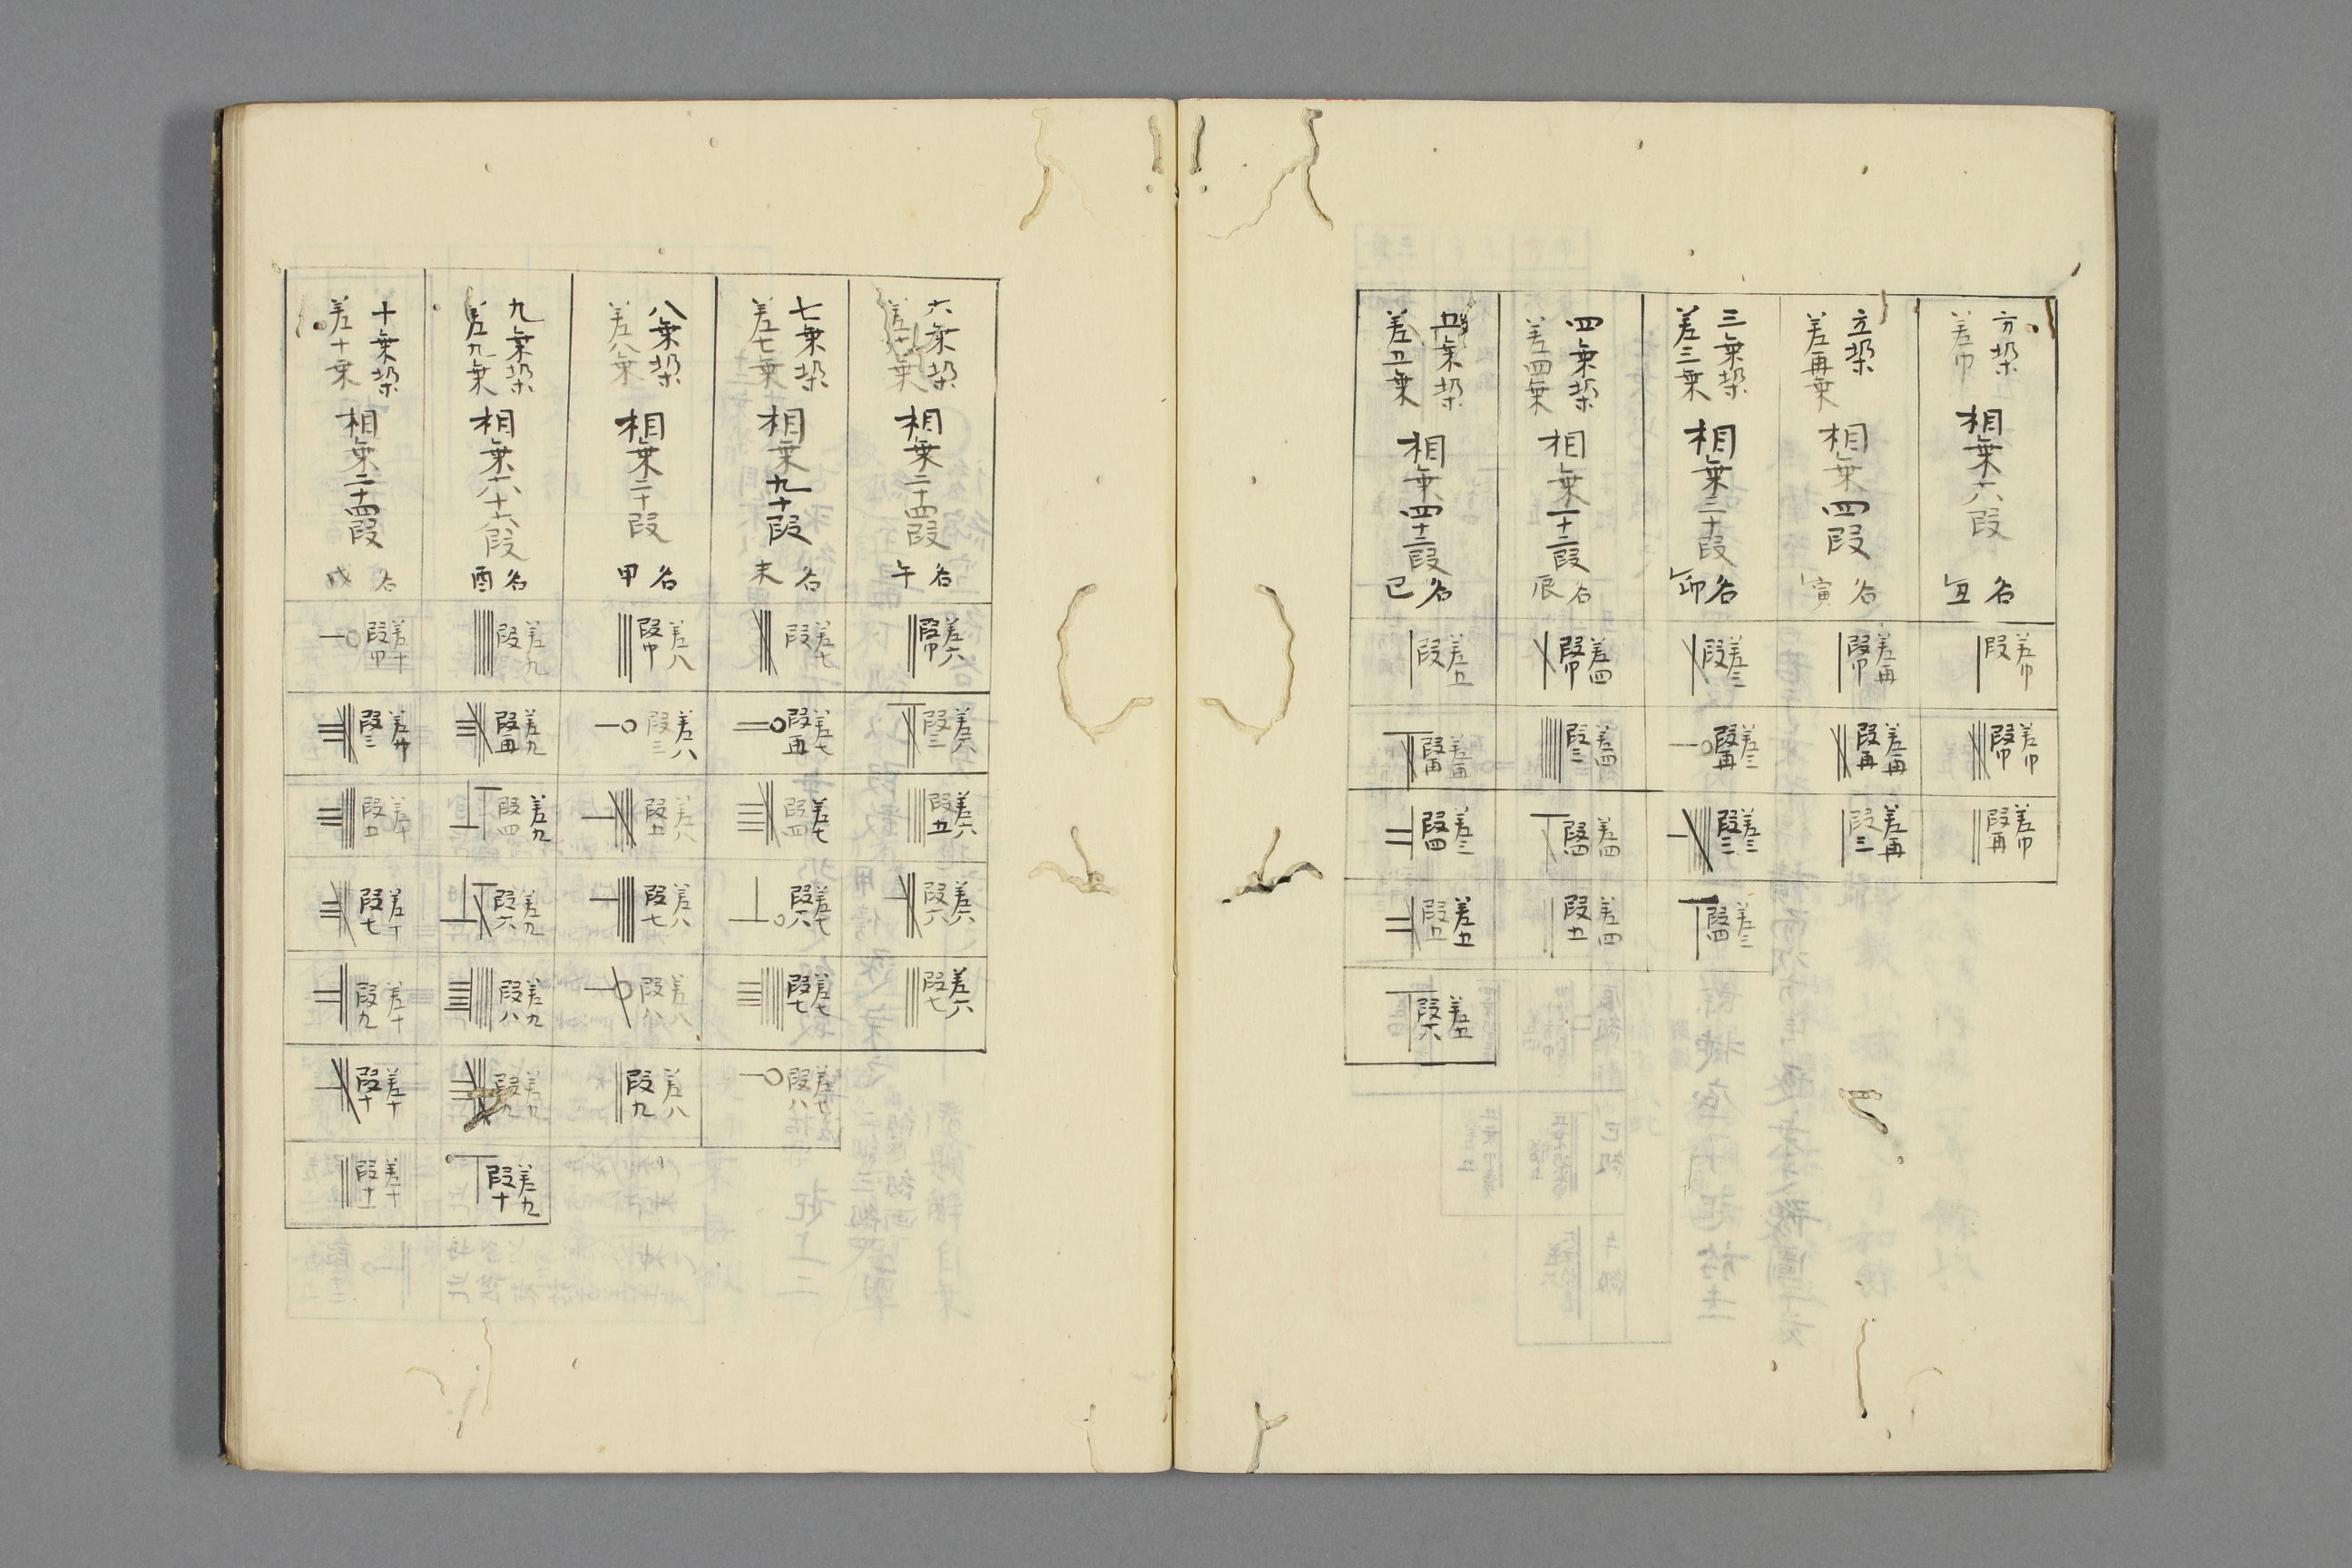 方垜 差巾 相乗六段 名丑
差巾 段
差巾 段巾
差巾 段再
立垜 差再乗 相乗四段 名寅
差再 段巾
差再 段再
差再 段三
三乗垜 差三乗 相乗三十段 名卯
差三 段
差三 段再
差三 段三
差三 段四
四乗垜 差四乗 相乗一十二段 名辰
差四 段巾
差四 段三
差四 段四
差四 段五
五乗垜 差五乗 相乗四十二段 名巳
差五 段
段再
段四
差五 段五
差五 段六
六乗垜 相乗二十四段 名午
差六 段巾
差六 段三
差六 段五
差六 段六
差六 段七
七乗垜 差七乗 相乗九十段 名未
差七 段
差七 段再
差七 段四
差七 段六
差七 段七
差七 段八
八乗垜 差八乗 相乗二十段 名甲
差八 段巾
差八 段三
差八 段五
差八 段七
差八 段八
差八 段九
九乗垜 差九乗 相乗六十六段 名酉
差九 段
差九 段再
差九 段四
差九 段六
差九 段八
差九 段九
差九 段十
十乗垜 差十乗 相乗二十四段 名戌
差十 段巾
段三
差十 段五
差十 段七
差十 段九
差十 段十
差十 段十一